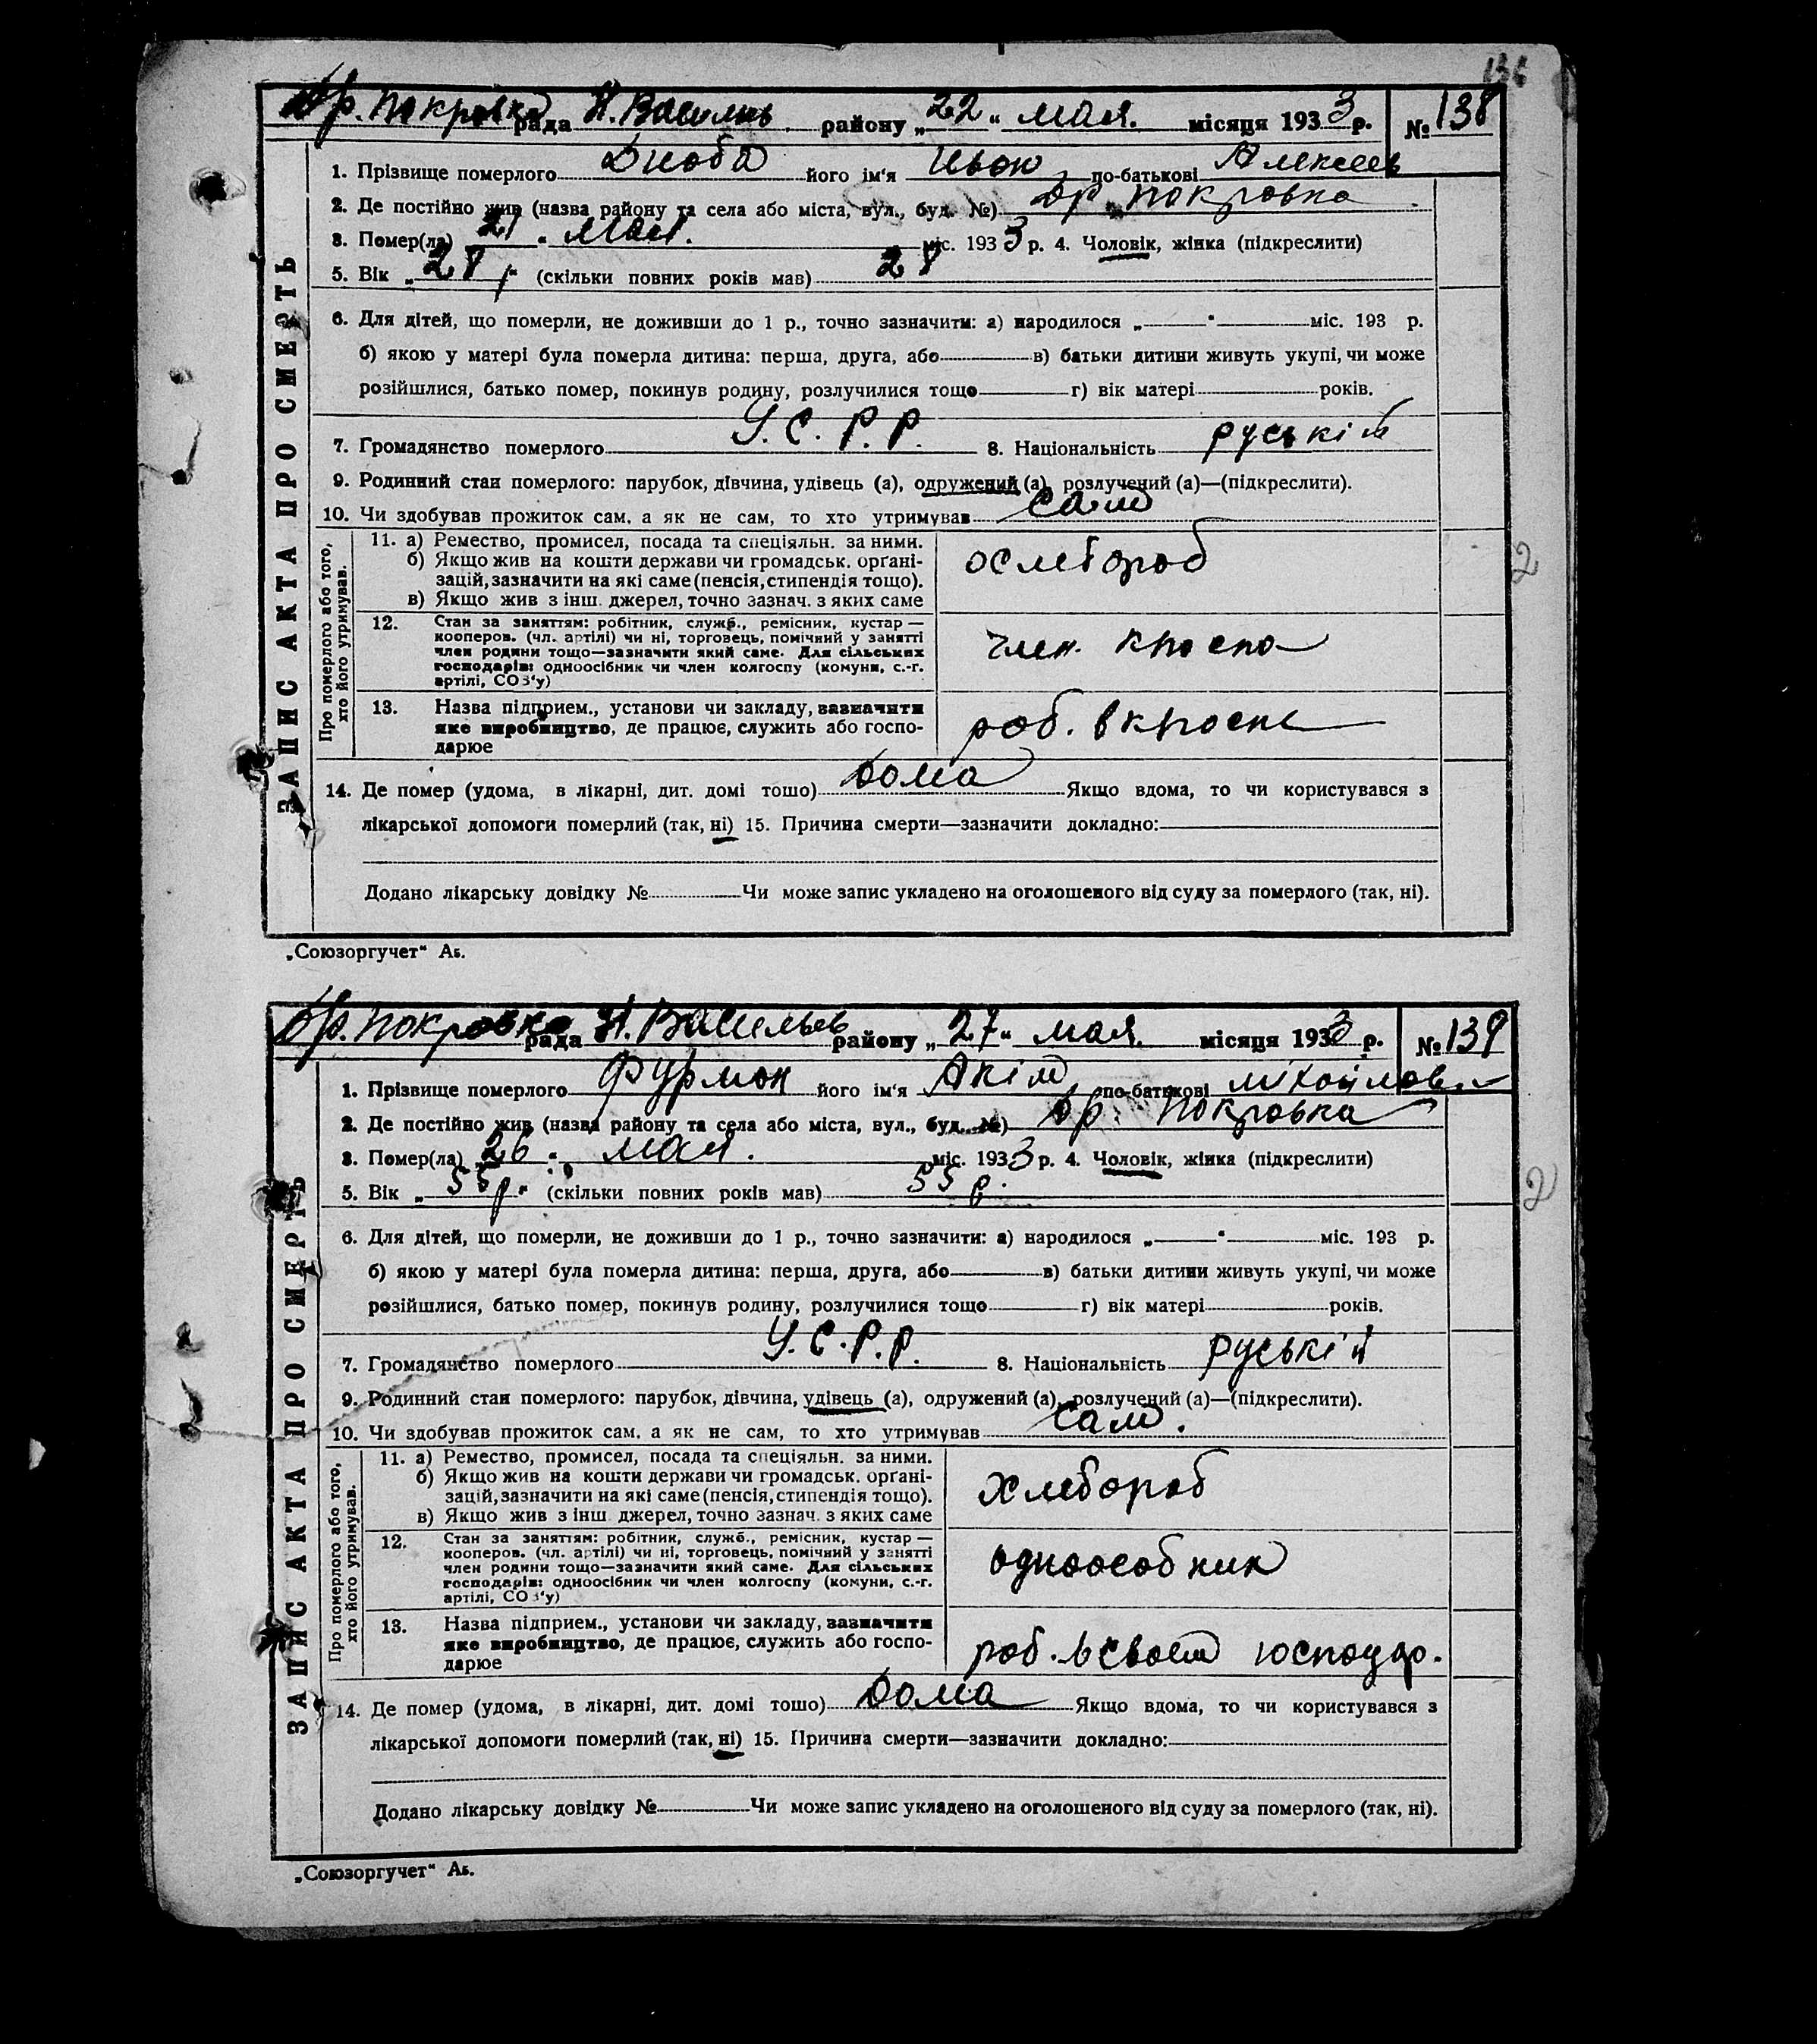 136
Др. Покровка рада Н. Василь району „22“ мая. місяця 1933 р. № 138
ЗАПИС АКТА ПРО СМЕРТЬ
1. Прізвище померлого його ім‘я Иван по-батькові Алексеев
2. Де постійно жив (назва району та села або міста, вул., буд. №) Др. Покровка
3. Помер(ла) „21“ мая. міс. 1933 р. 4. Чоловік, жінка (підкреслити)
5. Вік „28 р“ (скільки повних років мав) 28
6. Для дітей, що померли, не доживши до 1 р., точно зазначити: а) народилося „ “ міс. 193 р.
б) якою у матері була померла дитина: перша, друга, або в) батьки дитини живуть укупі, чи може
розійшлися, батько помер, покинув родину, розлучилися тощо г) вік матері років.
7. Громадянство померлого У.С.Р.Р. 8. Національність руській
9. Родинний стан померлого: парубок, дівчина, удівець (а), одружений (а), розлучений (а)—(підкреслити).
10. Чи здобував прожиток сам, а як не сам, то хто утримував сам
Про померлого або того,
хто його утримував.
11. а) Ремество, промисел, посада та спеціяльн. за ними.
б) Якщо жив на кошти держави чи громадськ. орґані-
зацій, зазначити на які саме (пенсія, стипендія тощо).
в) Якщо жив з інш. джерел, точно зазнач. з яких саме
хлебороб
12. Стан за заняттям: робітник, служб., ремісник, кустар —
кооперов. (чл. артілі) чи ні, торговець, помічний у занятті
член родини тощо—зазначити який саме. Для сільських
господарів: одноосібник чи член колгоспу (комуни, с.-г.
артілі, СОЗ‘у)
член.
13. Назва підприєм., установи чи закладу, зазначити
яке виробництво, де працює, служить або госпо-
дарює
роб. в
14. Де помер (удома, в лікарні, дит. домі тощо) дома Якщо вдома, то чи користувався з
лікарської допомоги померлий (так, ні) 15. Причина смерти—зазначити докладно:
Додано лікарську довідку № Чи може запис укладено на оголошеного від суду за померлого (так, ні).
2
„Союзоргучет“ Аб.
Др. Покровка рада Н. Васильев району „27“ мая. місяця 1933 р. № 139
ЗАПИС АКТА ПРО СМЕРТЬ
1. Прізвище померлого Фурман його ім‘я Акім по-батькові Міхайлов
2. Де постійно жив (назва району та села або міста, вул., буд. №) Др. Покровка
3. Помер(ла) „26“ мая. міс. 1933 р. 4. Чоловік, жінка (підкреслити)
5. Вік „55 р“ (скільки повних років мав) 55 р.
2
6. Для дітей, що померли, не доживши до 1 р., точно зазначити: а) народилося „ “ міс. 193 р.
б) якою у матері була померла дитина: перша, друга, або в) батьки дитини живуть укупі, чи може
розійшлися, батько помер, покинув родину, розлучилися тощо г) вік матері років.
7. Громадянство померлого У.С.Р.Р. 8. Національність руській
9. Родинний стан померлого: парубок, дівчина, удівець (а), одружений (а), розлучений (а)—(підкреслити).
10. Чи здобував прожиток сам, а як не сам, то хто утримував сам.
Про померлого або того,
хто його утримував.
11. а) Ремество, промисел, посада та спеціяльн. за ними.
б) Якщо жив на кошти держави чи громадськ. орґані-
зацій, зазначити на які саме (пенсія, стипендія тощо).
в) Якщо жив з інш. джерел, точно зазнач. з яких саме
хлебороб
12. Стан за заняттям: робітник, служб., ремісник, кустар —
кооперов. (чл. артілі) чи ні, торговець, помічний у занятті
член родини тощо—зазначити який саме. Для сільських
господарів: одноосібник чи член колгоспу (комуни, с.-г.
артілі, СОЗ‘у)
одноособник
13. Назва підприєм., установи чи закладу, зазначити
яке виробництво, де працює, служить або госпо-
дарює
роб. в своем господар.
14. Де помер (удома, в лікарні, дит. домі тощо) дома Якщо вдома, то чи користувався з
лікарської допомоги померлий (так, ні) 15. Причина смерти—зазначити докладно:
Додано лікарську довідку № Чи може запис укладено на оголошеного від суду за померлого (так, ні).
„Союзоргучет“ Аб.